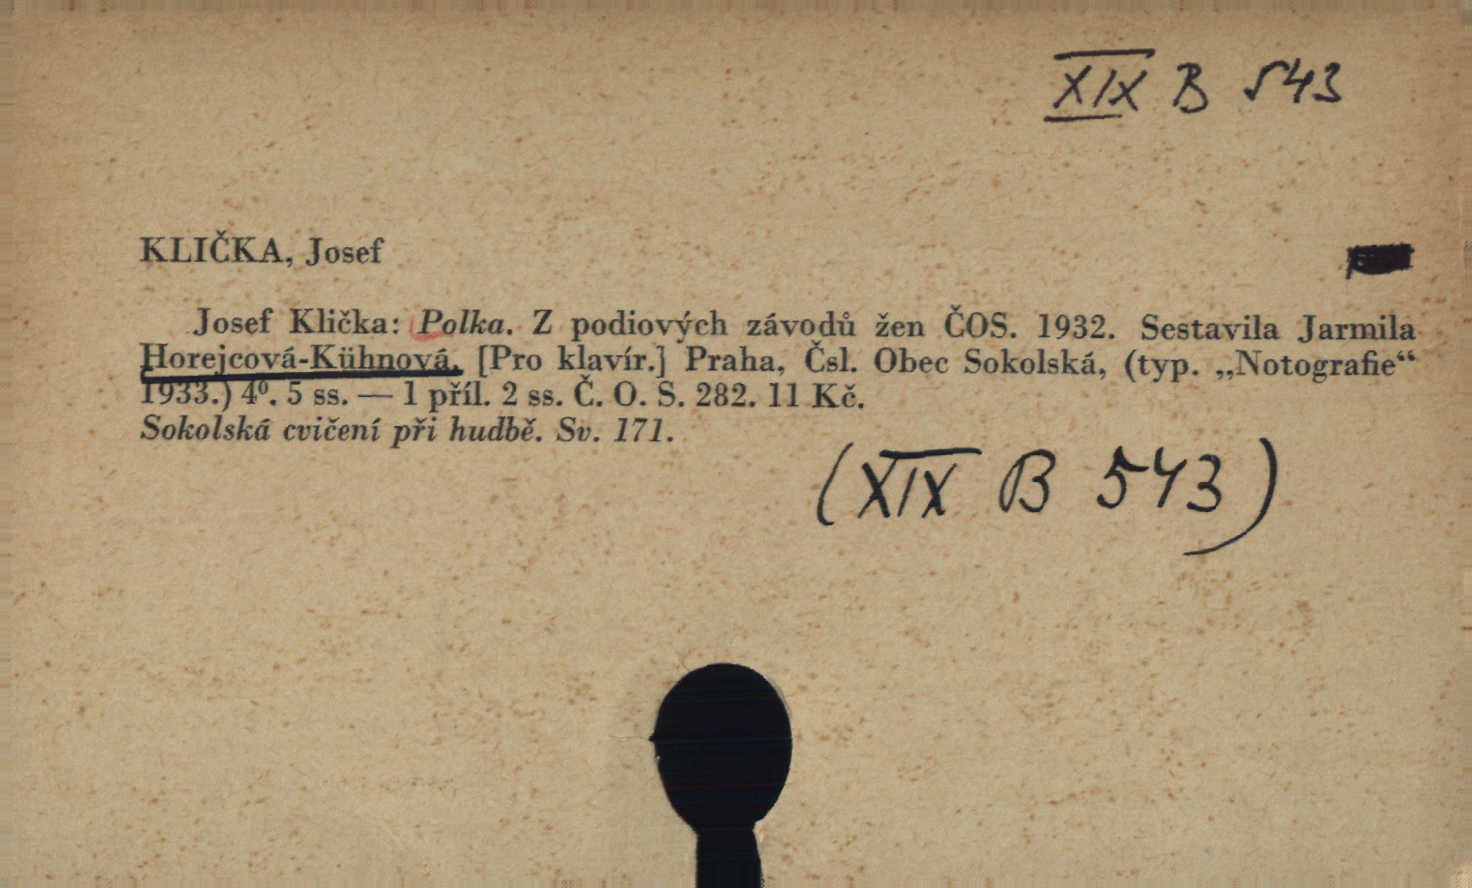 XIX B 543
KLIČKA, Josef
Josef Klička: Polka. Z podiových závodů žen ČOS. 1932. Sestavila Jarmila
Horejcová-Kühnová. [Pro klavír.] Praha, Čsl. Obec Sokolská, (typ. „Notografie“
1933.) 4⁰. 5 ss. — 1 příl. 2 ss. Č. O. S. 282. 11 Kč.
Sokolská cvičení při hudbě. Sv. 171.
(XIX B 543)